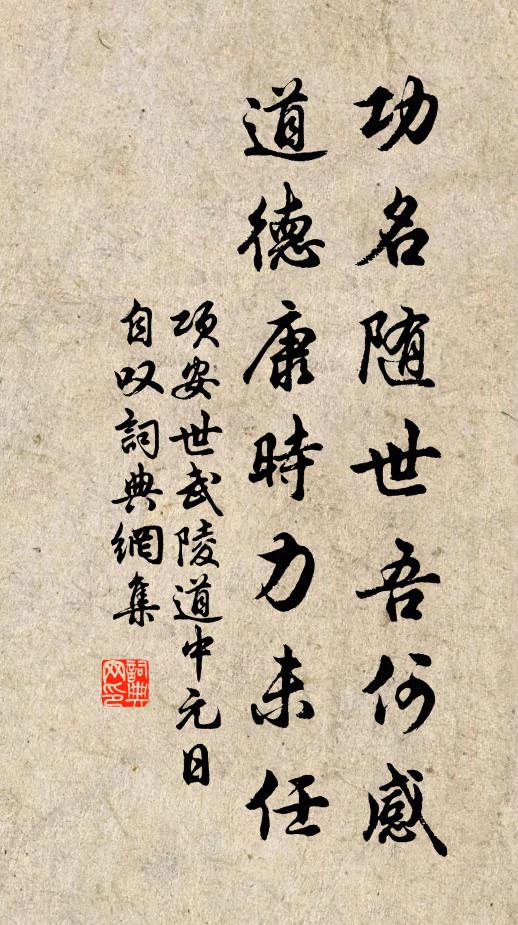 功名随世吾何感
道德康時力未任
项安世武陵道中元日
自叹詞典網集
詞典网印